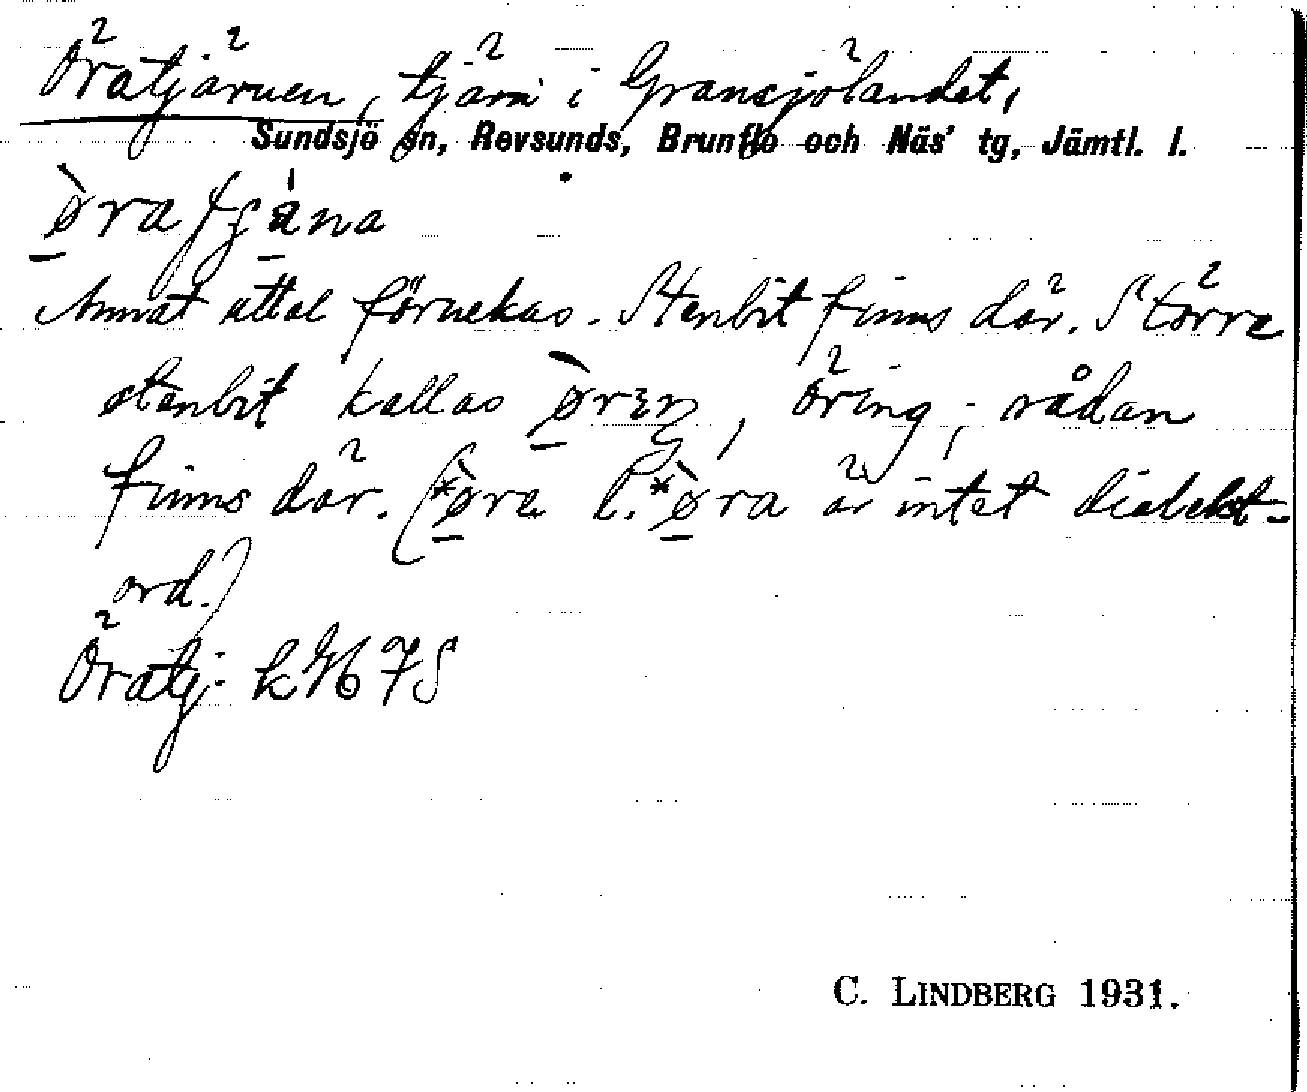 Öratjärnen, tjärn i Gransjölandet,
Sundsjö sn, Revsunds, Brunflo och Näs' tg, Jämtl. l.
Annat uttal förnekas. Stenbit finns där. Större
stenbit kallas öring; sådan
finns där. (*ø̀ra l. *ø̀ra är intet dialekt-
ord.)
Öratj:
C. LINDBERG 1931.